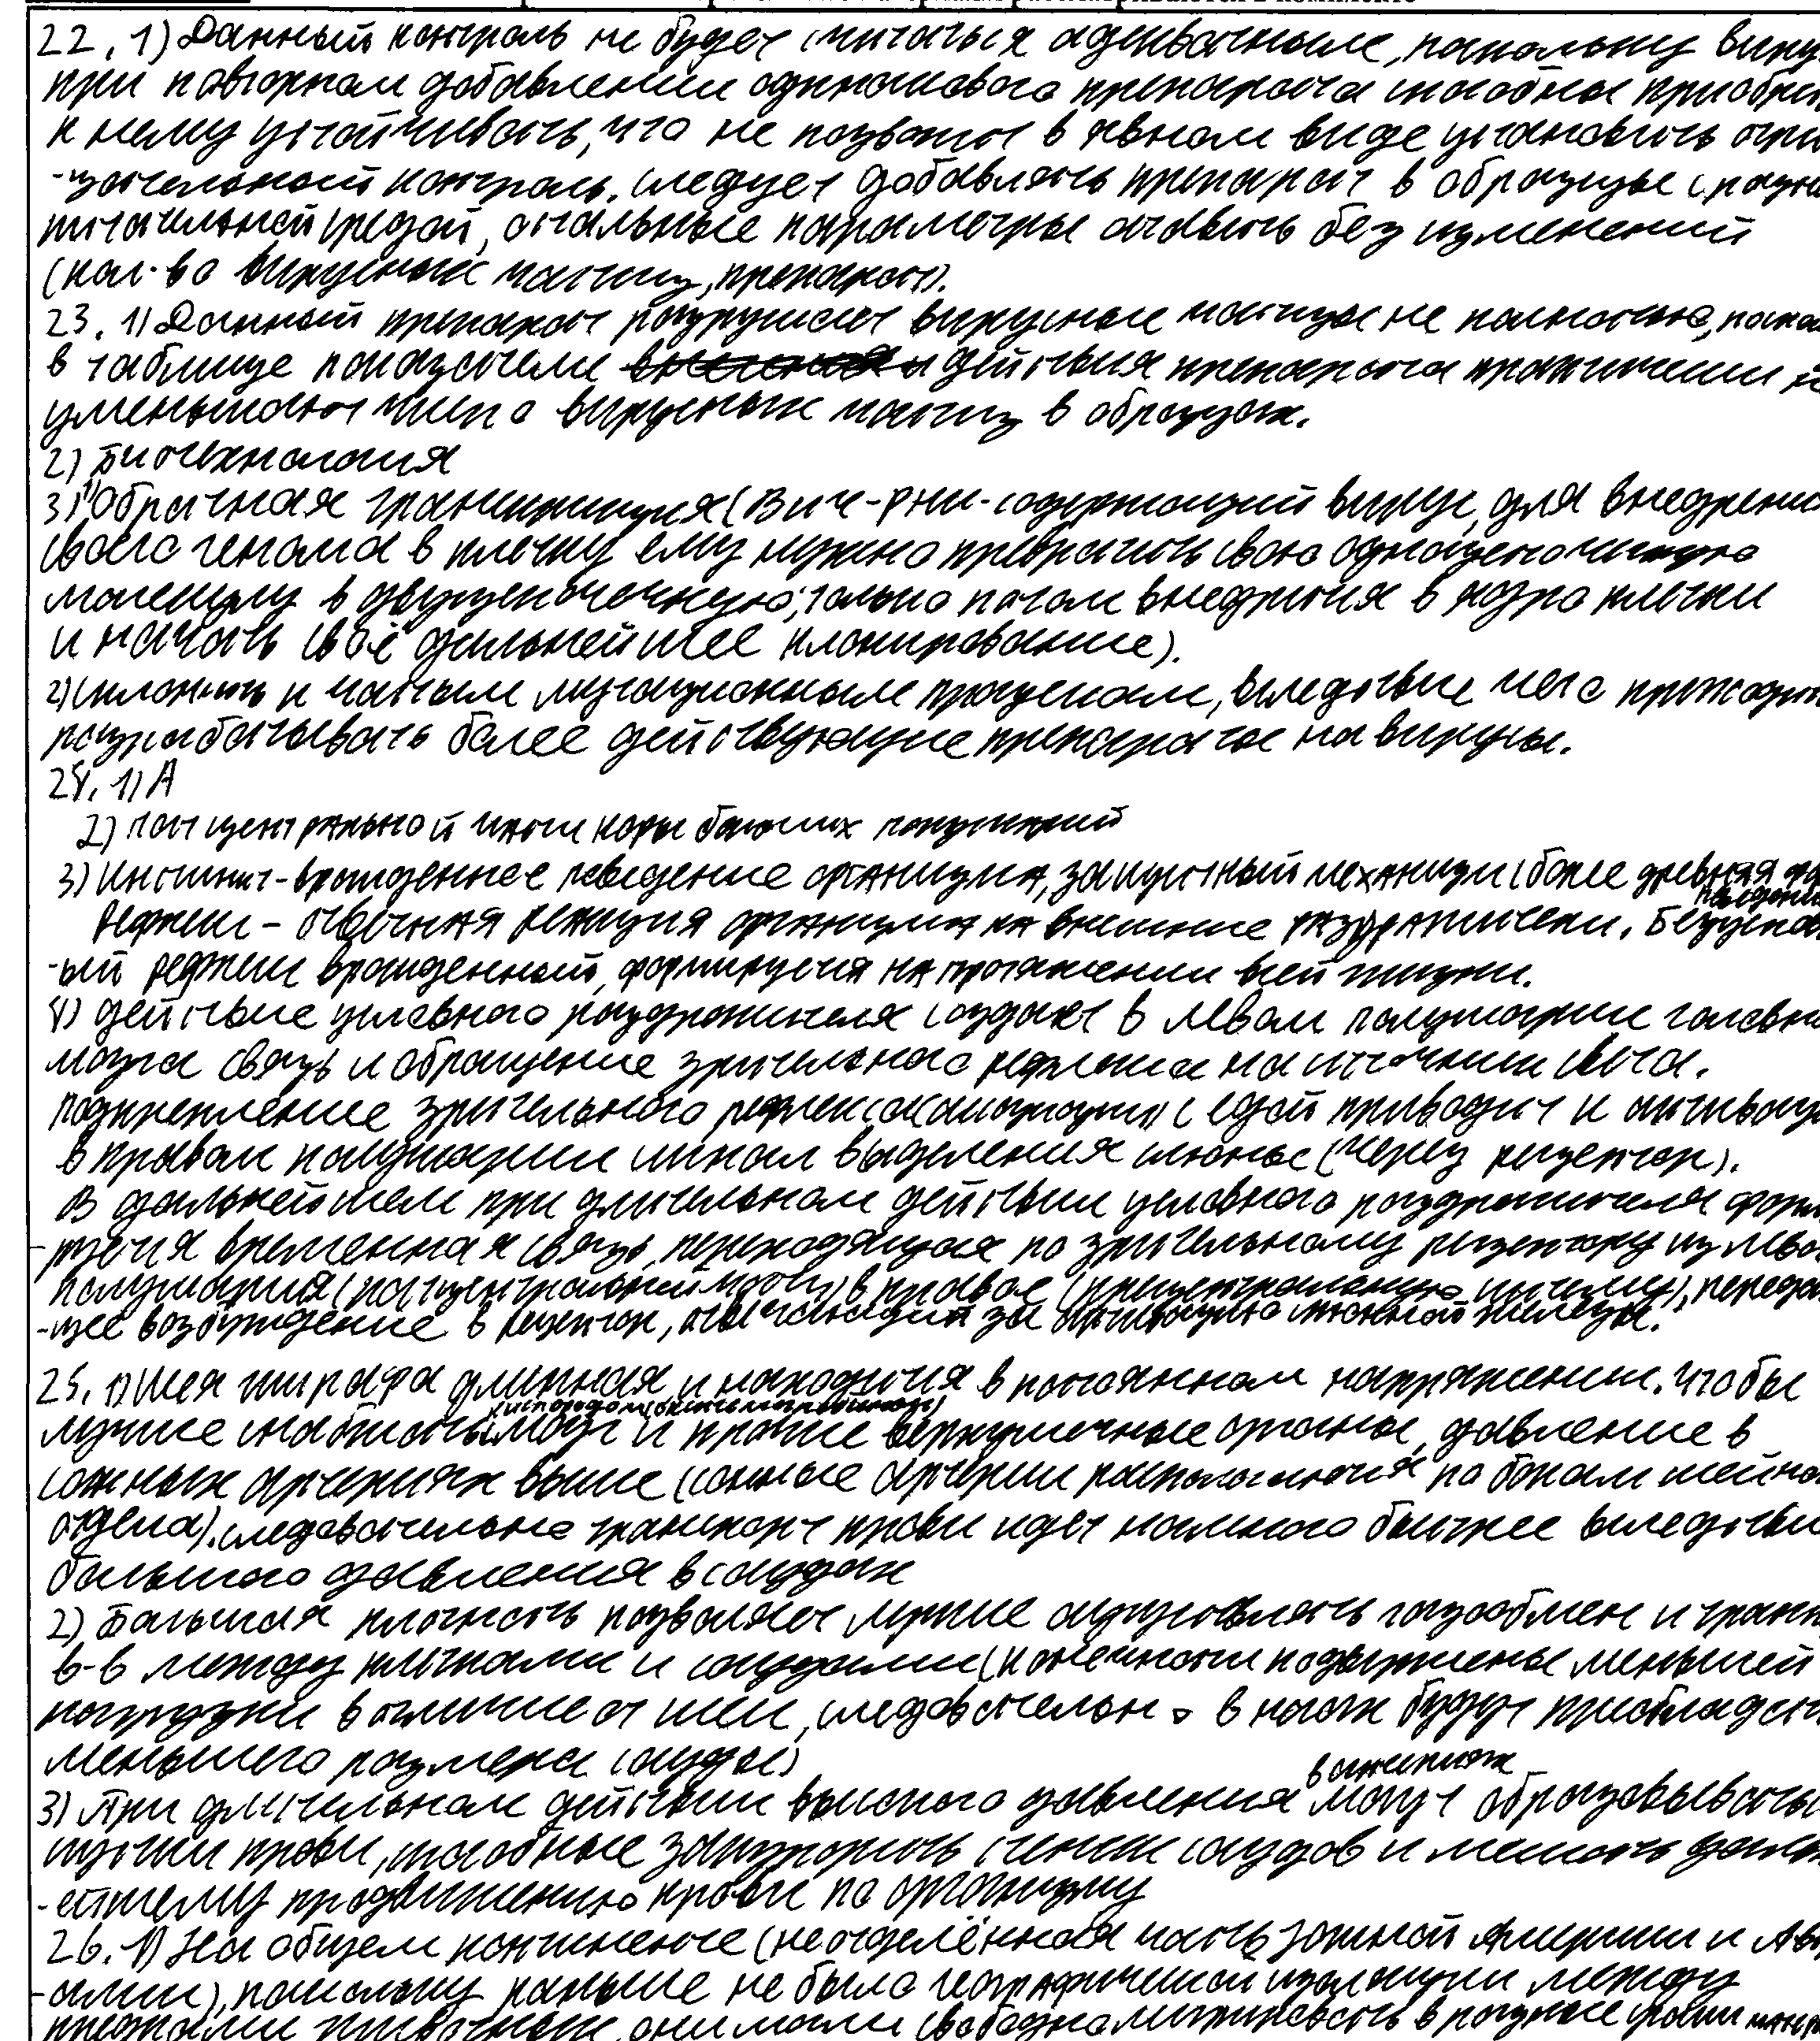 22. 1) Данный контроль не будет считаться адекватным, поскольку виру
при повторном добавлении одинакового препарата способны приобре
к нему устойчивость, что не позволит в явном виде установить отри
-цательный контроль. Следует добавлять препарат в образцы с разн
питательной средой, остальные параметры оставить без изменений
(кол-во вирусных частиц, препарат).
23. 1) Данный препарат разрушает вирусные частицы не полностью, поско
в таблице показатели действия препарата практически не
уменьшают число вирусных частиц в образцах.
2) Биотехнология
3) 1) Обратная транскрипция (Вич-рнк-содержащий вирус, для внедрения
своего генома в клетку ему нужно превратить свою одноцепочечную
молекулу в двуцепочечную, только потом внедриться в ядро клетки
и начать своё дальнейшее клонирование).
2) склонность к частым мутационным процессам, вследствие чего приходит
разрабатывать более действующие препараты на вирусы.
24. 1) А
2) постцентральной части коры больших полушарий
3) Инстинкт - врожденное поведение организма, защитный механизм (более древняя фо
поведения
Рефлекс - ответная реакция организма на внешние раздражители. Безуслов
-ый рефлекс врожденный, формируется на протяжении всей жизни.
4) Действие условного раздражителя создает в левом полушарии головн
мозга связь и обращение зрительного рефлекса на источник света.
Подкрепление зрительного рефлекса с едой приводит к активац
в правом полушарии сигнал выделения слюны (через рецептор).
В дальнейшем при длительном действии условного раздражителя форм
-руется временная связь, переходящая по зрительному рецептору из лево
полушария (постцентральной) в правое (прецентральную), переда
-щее возбуждение в рецептор, отвечающий за активацию слюнной железы.
25. 1) Шея жирафа длинная и находится в постоянном напряжении. Чтобы
кислородом
лучше снабжать мозг и прочие верхушечные органы, давление в
сонных артериях выше (сонные артерии располагаются по бокам шейно
отдела). Следовательно транспорт крови идет намного быстрее вследстви
большого давления в сосудах
2) Большая плотность позволяет лучше осуществлять газообмен и трансп
в-в между клетками и сосудами (конечности подвержены меньшей
нагрузки в отличие от шеи, следовательно в ногах будут преобладать
меньшего размера сосуды)
в артериях
3) При длительном действии высокого давления могут образовываться
сгустки крови, способные закупорить стенки сосудов и мешать даль
-ейшему продвижению крови по организму
26. 1) На общем континенте (неотделённая часть Южной Америки и Авс
-алии), поскольку раньше не было географической изоляции между
предками животных, они могли свободно мигрировать в разные